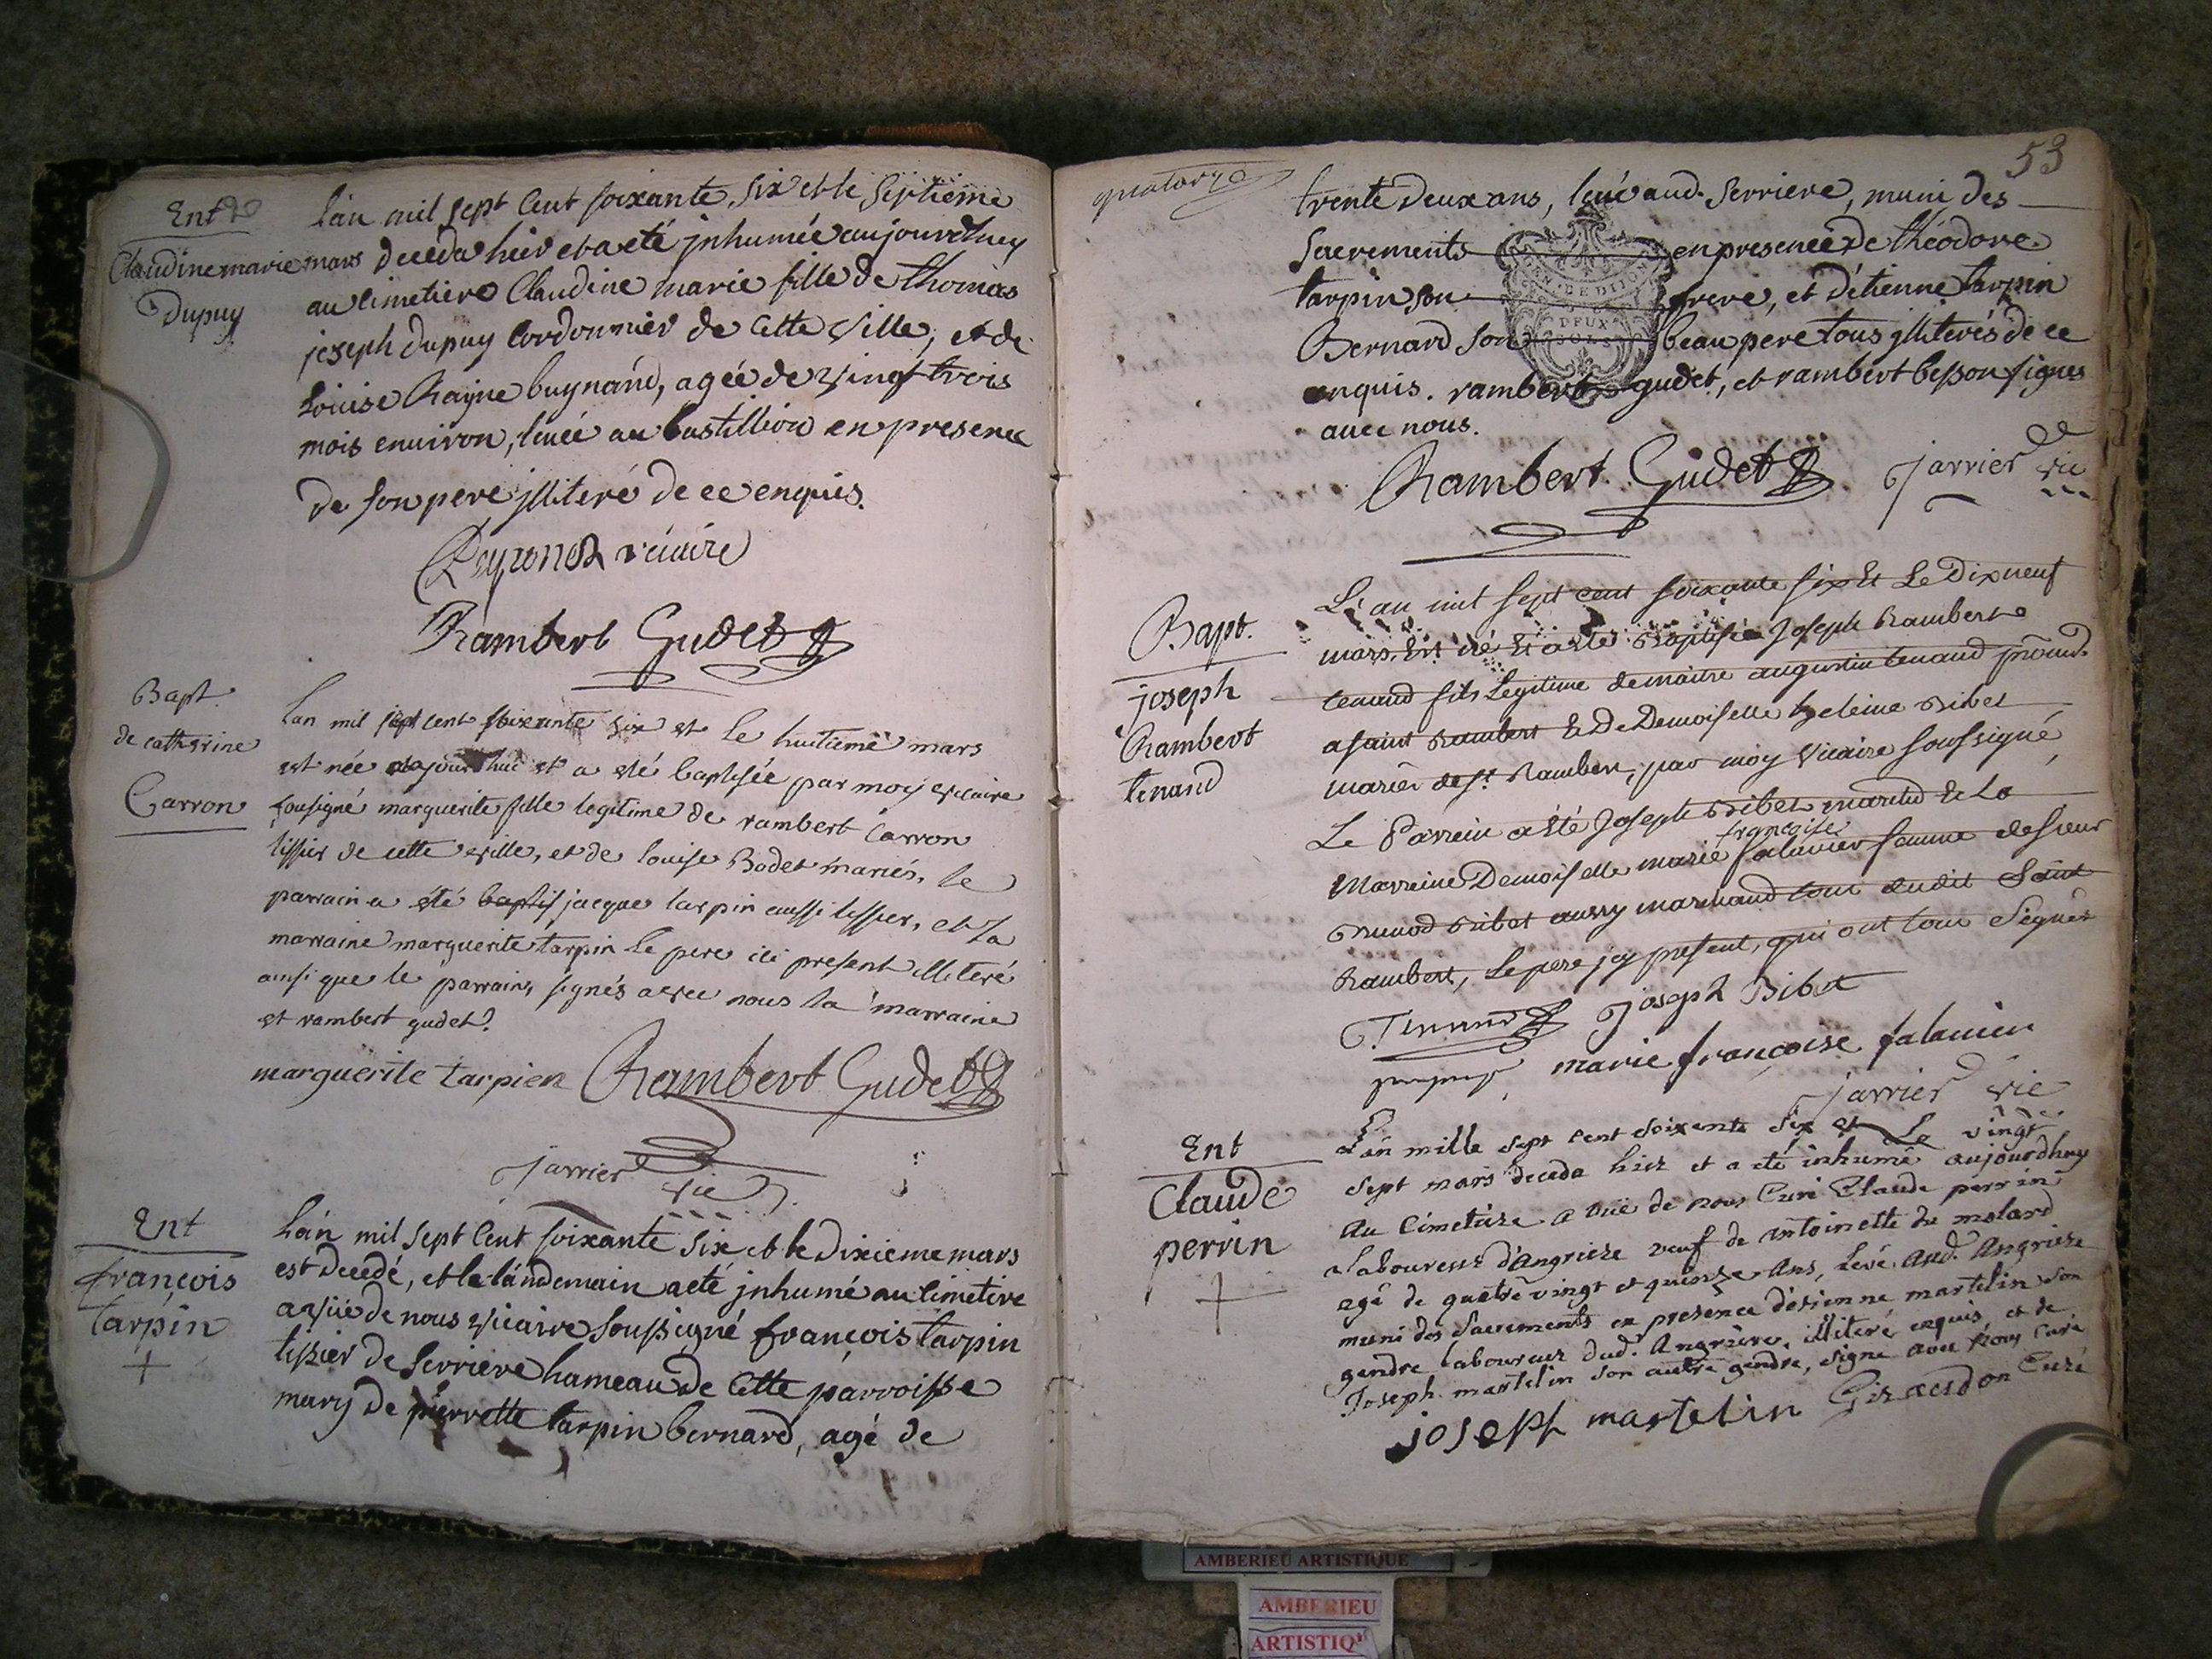 Ent
Claudine marie
Dupuy
l'an mil sept Cent soixante, six et le septieme
mars deceda hier et a eté jnhumée aujourdhuy
au cimetiere Claudine marie fille de thomas
joseph dupuy Cordonnier de Cette ville, et de
Louise Rayne buynand, agée de vingt trois
mois environ, levée au bastillion en presence
de son pere jlliteré de ce enquis.
Peyronet vicaire
Rambert Gudet
Bapt.
de catherine
Carron
Lan mil sept cent soixante six et le huitieme mars
est née aujourdhui et a eté baptisée par moy vicaire
sousigné marguerite fille legitime de rambert Carron
tissier de cette ville, et de louise Bodet mariés, le
parrain a été baptis jacque tarpin aussi tissier, et la
marraine marguerite tarpin le pere ici present illiteré
ainsi que le parrain, signés avec nous la marraine
et rambert gudet.
marguerite tarpien Rambert Gudet
Jarrier vic
Ent
françois
tarpin
L'an mil sept Cent soixante six et le dixieme mars
est decedé, et le landemain a eté jnhumé au cimetire
a vüe de nous vicaire soussigné françois tarpin
tissier de serriere hameau de Cette parroisse
mary de pierrette tarpin bernard, agé de
quatorze
53
trente deux ans, levé aud. serriere, muni des
sacrements en presence de théodore
tarpin son frere, et d'étienne tarpin
Bernard son beau pere tous jlliterés de ce
enquis. rambert gudet, et rambert besson signés
avec nous.
DE DIJON
DEUX
SOLS
Rambert Gudet Jarrier vic
Bapt.
joseph
Rambert
tenand
L'an mil sept cent soixante six et Le dix neuf
mars est né et a eté Baptisé Joseph Rambert
tenand fils Legitime de maitre augustin tenand
a saint Rambert et De Demoiselle heleine Bibet
mariés de st. Rambert, par moy Vicaire soussigné,
Le Parrein a été Joseph Bibet marchd et La
françoise
Marreine Demoiselle marie falavier femme de sieur
Bibet aussy marchand tous dudit Saint
Rambert, Le pere jcy present, qui ont tous Signés
Tenand Joseph Bibet
marie françoise falavier
Jarrier vic
Ent
Claude
perrin
L'an mille sept cent soixente six et Le vingt
sept mars deceda hier et a eté inhumé aujourdhuy
au cimetiere a vuë de nous Curé Claude perrin
laboureur d'Angriere veuf de antoinette du molard
agé de quatre vingt et quinze ans, levé aud. Angriere
muni des sacrements en presence d'etienne martelin son
gendre laboureur dud. Angriere, illiteré enquis, et de
Joseph martelin son autre gendre, signé avec Nous Curé
joseph martelin Giraudon Curé
AMBERIEU ARTISTIQUE
AMBERIEU
ARTISTIQ